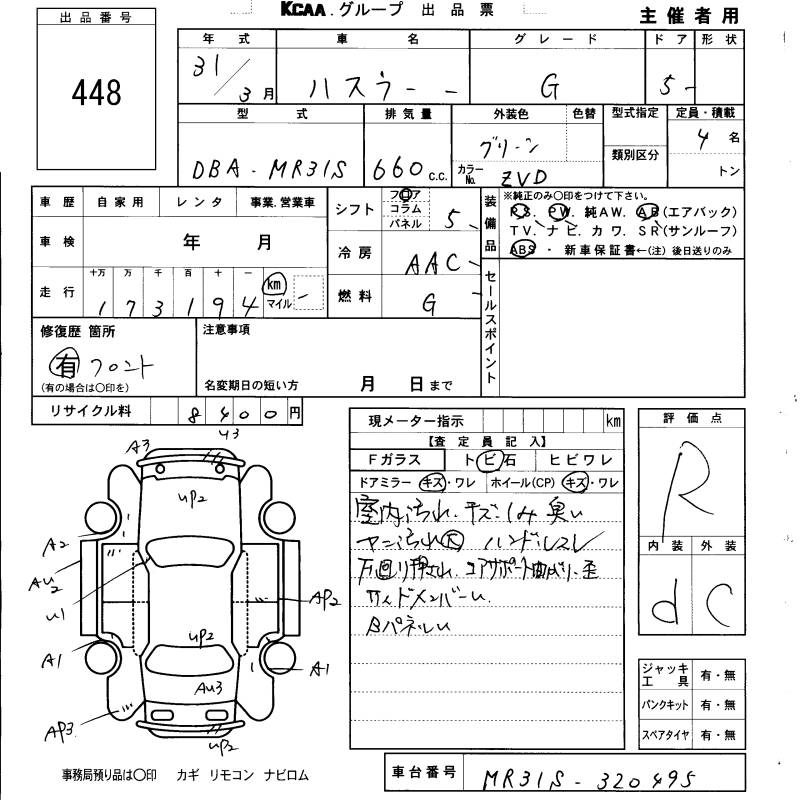 KCAA.グループ 出品票
主催者用
出品番号
448
年式 車名 グレード ドア 形状
31/3月 ハスラー G 5
型式 排気量 外装色 色替 型式指定 定員・積載
DBA-MR31S 660 c.c. グリーン 類別区分 4名
カラーNo. ZVD トン
車歴 自家用 レンタ 事業.営業車
車検 年 月
走行 十万 万 千 百 十 一 km マイル
1 7 3 1 9 4
シフト フロア コラム パネル 5
冷房 AAC
燃料 G
装備品
※純正のみ○印をつけて下さい。
PS. PW. 純AW. AB(エアバック)
TV. ナビ. カワ. SR(サンルーフ)
ABS ・ 新車保証書←(注) 後日送りのみ
セールスポイント
修復歴 箇所
有 フロント
(有の場合は○印を)
注意事項
名変期日の短い方 月 日まで
リサイクル料 8 4 0 0 円
現メーター指示 km
【査定員記入】
Fガラス トビ石 ヒビワレ
ドアミラー キズ・ワレ ホイール(CP) キズ・ワレ
室内汚れ.キズ.シミ 臭い
ヤニ汚れ大 ハンドルスレ
下回り押され.コアサポート曲がり.歪
サイドメンバーU.
BパネルU
評価点
R
内装 外装
d C
ジャッキ工具 有・無
パンクキット 有・無
スペアタイヤ 有・無
A3 U3
UP2
A2
AU2
U1
AP2
UP2
A1 A1
AU3
AP3
UP2
事務局預り品は○印 カギ リモコン ナビロム
車台番号 MR31S-320495